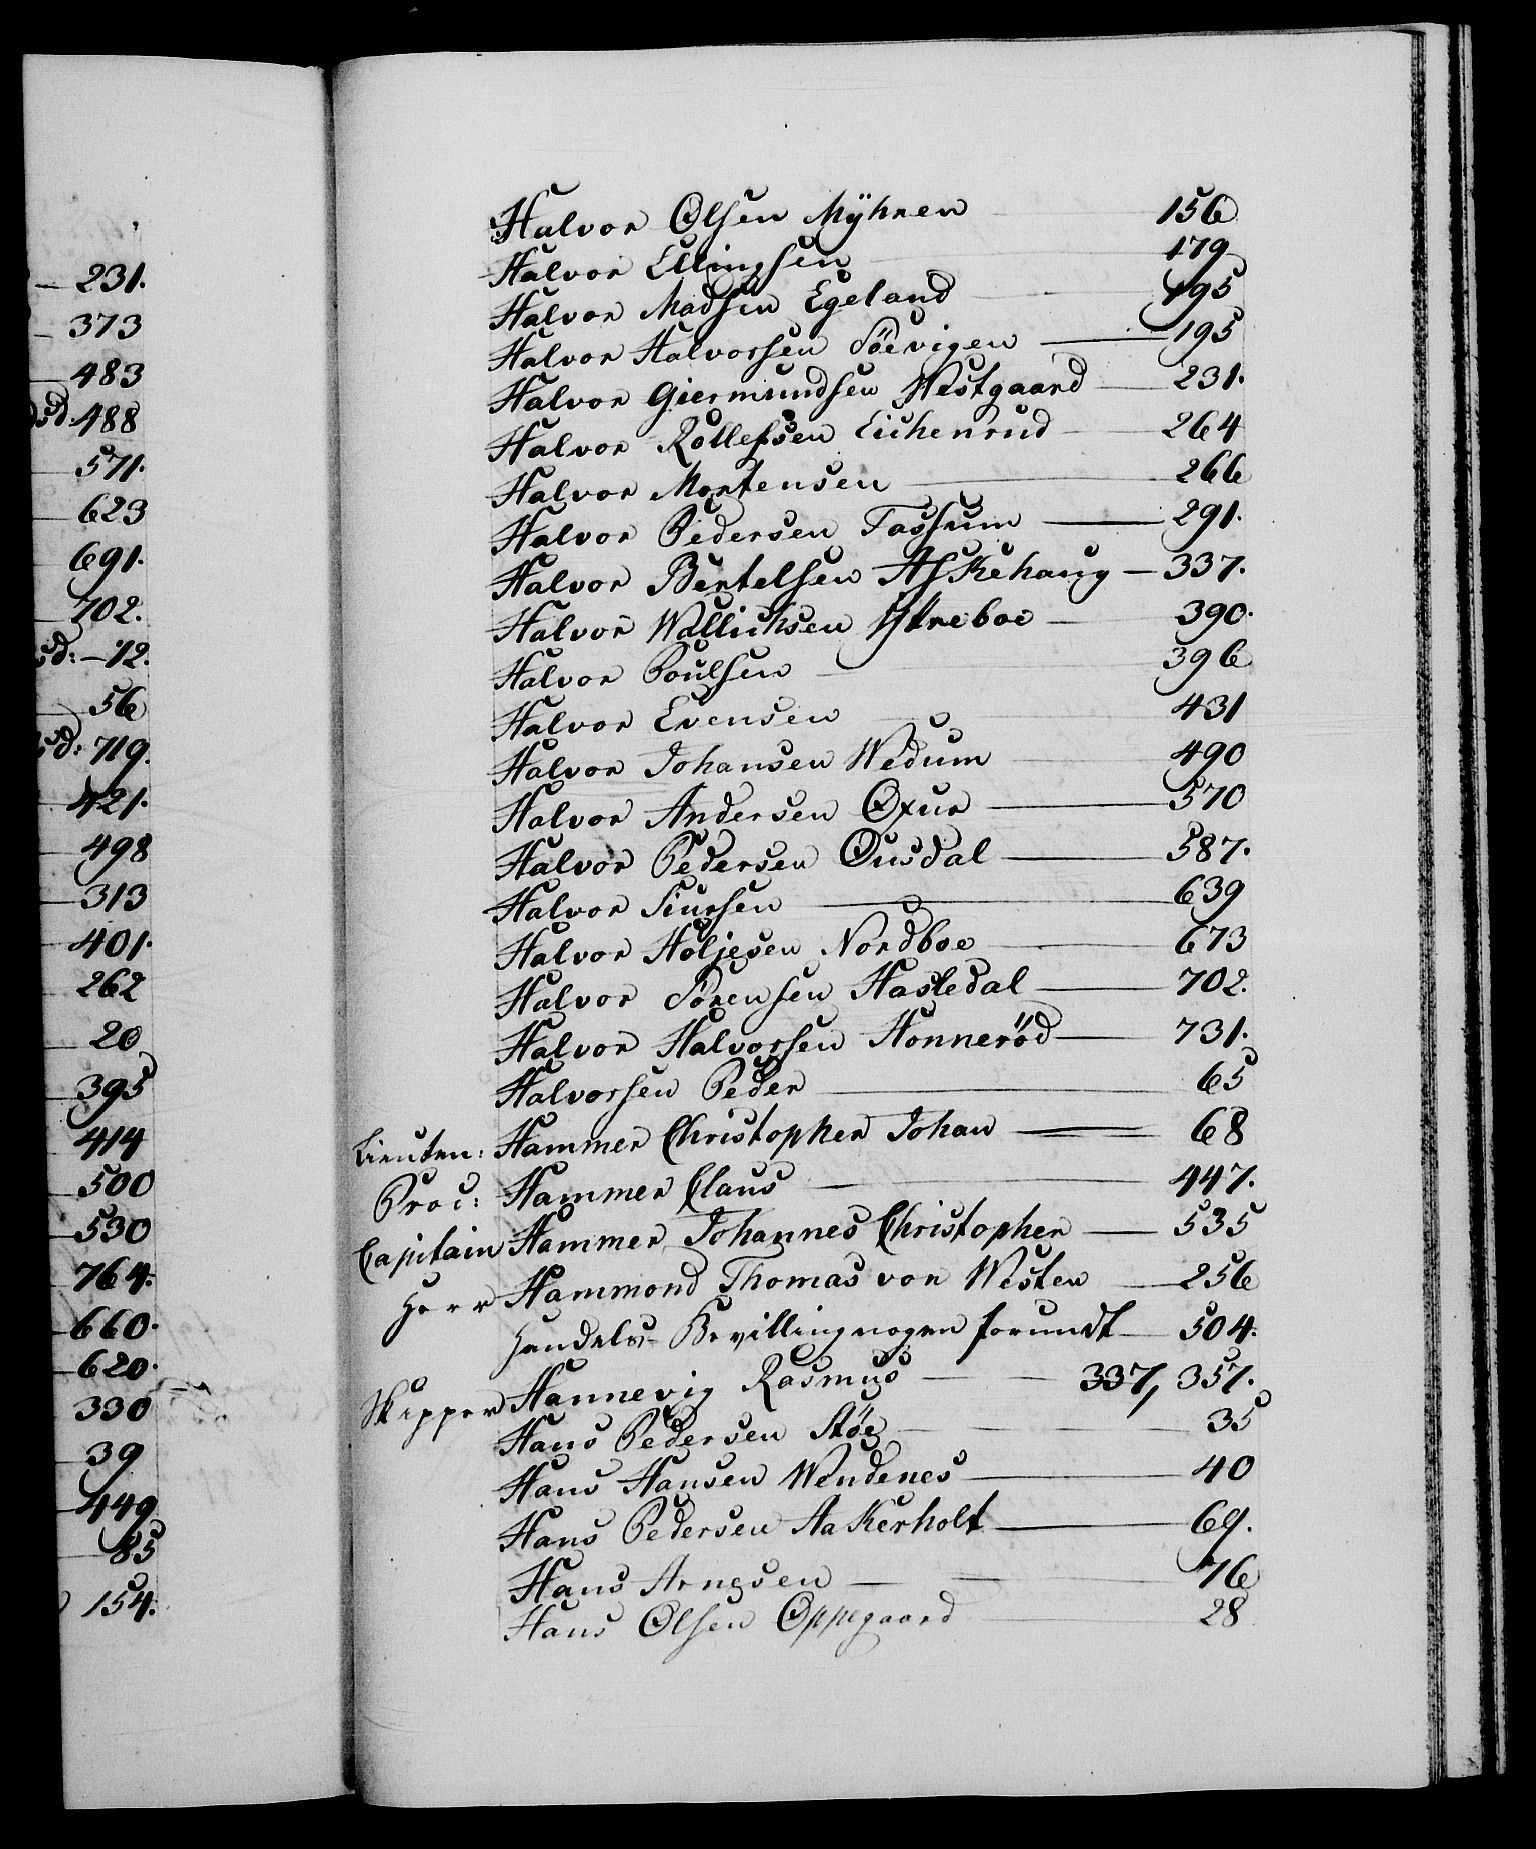 231.
373
483
488
571.
623
691.
702.
sd: 12.
56
sd: 719.
421.
498
313
401.
262
20
395
414
500
530
764.
660.
620.
330
39
449
85
154.
Halvor Olsen Mÿhren 156
Halvor Ellingsen 179
Halvor Madsen Egeland 195
Halvor Halvorsen Söevigen 195
Halvor Giermundsen Westgaard 231.
Halvor Rollefsen Eichenrud 264
Halvor Mortensen 266
Halvor Pedersen Fossum 291.
Halvor Bertelsen Askehaug 337.
Halvor Wallichsen Ytreboe 390.
Halvor Poulsen 396
Halvor Evensen 431
Halvor Johansen Wedum 490
Halvor Andersen Oxur 570
Halvor Pedersen Ousdal 587.
Halvor Siursen 639
Halvor Holjesen Nordboe 673
Halvor Sörensen Hasledal 702.
Halvor Halvorsen Honneröd 731.
Halvorsen Peder 65
Lieuten: Hammer Christopher Johan 68
Proc: Hammer Claus 447.
Capitain Hammer Johannes Christopher 535
Herr Hammond Thomas von Westen 256
Handels-Bevilling nogen forundt 504.
Skipper Hannevig Rasmus 337, 357.
Hans Pedersen Stöe 35
Hans Hansen Wendenes 40
Hans Pedersen Aakerholt 69.
Hans Arnesen 76
Hans Olsen Oppegaard 28